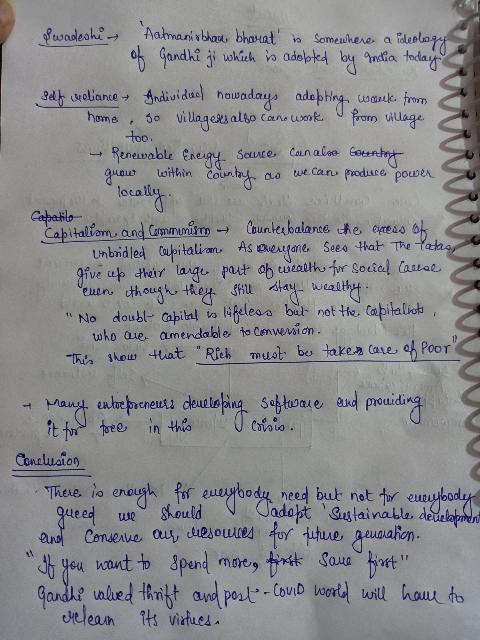 Swadeshi → 'Aatmanirbhar bharat' is somewhere a ideology
of Gandhi ji which is adopted by India today
Self reliance → Individual nowadays adopting work from
home, so villagers also can work from village
too.
→ Renewable Energy Source can also Country
grow within Country as we can produce power
locally.
Capatilo
Capitalism and Communism → Counterbalance the excess of
unbridled Capitalism As everyone sees that The Tatas
give up their large part of wealth for social cause
even though they still stay wealthy.
"No doubt capital is lifeless but not the capitalists,
who are amendable to conversion.
This show that "Rich must be takes care of Poor"
→ Many entrepreneurs developing software and providing
it for free in this crisis.
Conclusion
There is enough for everybody need but not for everybody
greed we should adopt sustainable development
and conserve our resources for future generation.
"If you want to spend more, first save first"
Gandhi valued thrift and post-COVID world will have to
relearn its virtues.